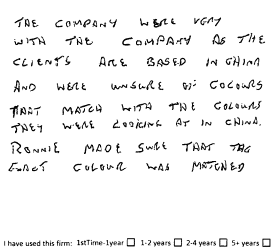 THE COMPANY WERE VERY
WITH THE COMPANY AS THE
CLIENTS ARE BASED IN CHINA
AND WERE UNSURE OF COLOURS
THAT MATCH WITH THE COLOURS
THEY WERE LOOKING AT IN CHINA.
RONNIE MADE SURE THAT THE
EXACT COLOUR WAS MATCHED
I have used this firm: 1stTime-1year ☐ 1-2 years ☐ 2-4 years ☐ 5+ years ☐